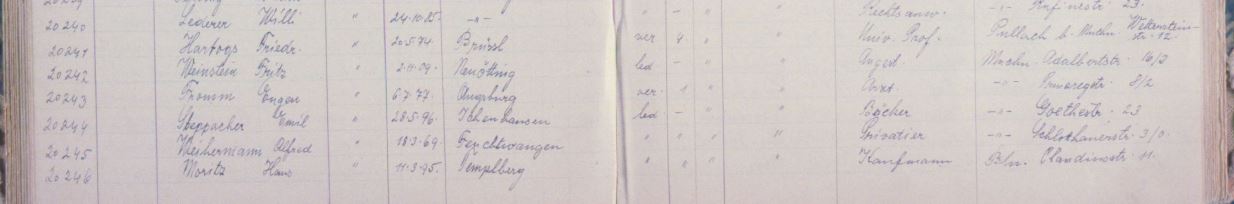 20240 Lederer Willi " 24.10.85. -"- " - " " Rechtsanw. -"-
20241 Hartogs Friedr. " 20.5.74. Brüssl ver 4 " " Univ. Prof. Pullach b. Mchn. Wettenstein-str. 12.
20242 Weinstein Fritz " 2.11.09. Neuötting led - " " Angest. Mnchn. Adalbertstr. 16/3
20243 Fromm Eugen " 6.7.77. Augsburg ver. 1 " " Arzt. -"- 8/2
20244 Steppacher Emil " 28.5.96. Ichenhausen led - " " Bäcker -"- Goethestr. 23
20245 Weihermann Alfred " 18.3.69. Feuchtwangen " " " " Privatier -"- 3/0.
20246 Moritz Hans " 11.3.95. Tempelberg " " " " Kaufmann Bln. Claudiusstr. 11.